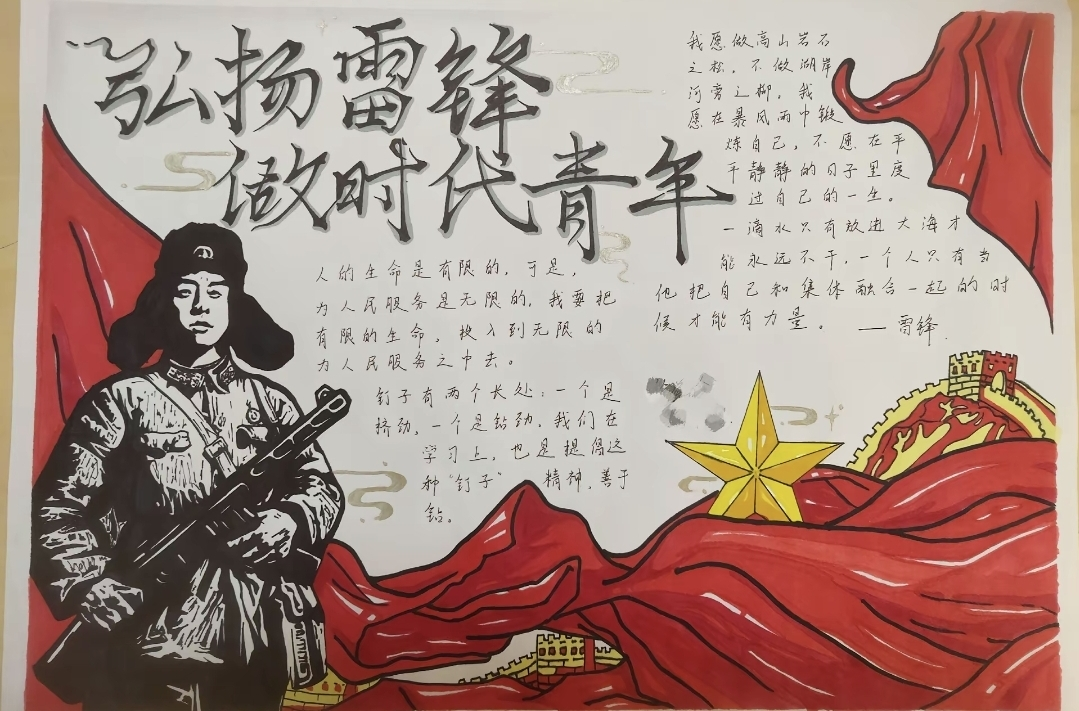 弘扬雷锋
做时代青年
我愿做高山岩石
之松，不做湖岸
河旁之柳，我
愿在暴风雨中锻
炼自己，不愿在平
平静静的日子里度
过自己的一生。
一滴水只有放进大海才
能永远不干，一个人只有当
他把自己和集体融合一起的时
候才能有力量。 ——雷锋.
人的生命是有限的，于是，
为人民服务是无限的，我要把
有限的生命，投入到无限的
为人民服务之中去。
钉子有两个长处：一个是
挤劲，一个是钻劲。我们在
学习上，也是提倡这
种“钉子” 精神，善于
钻。